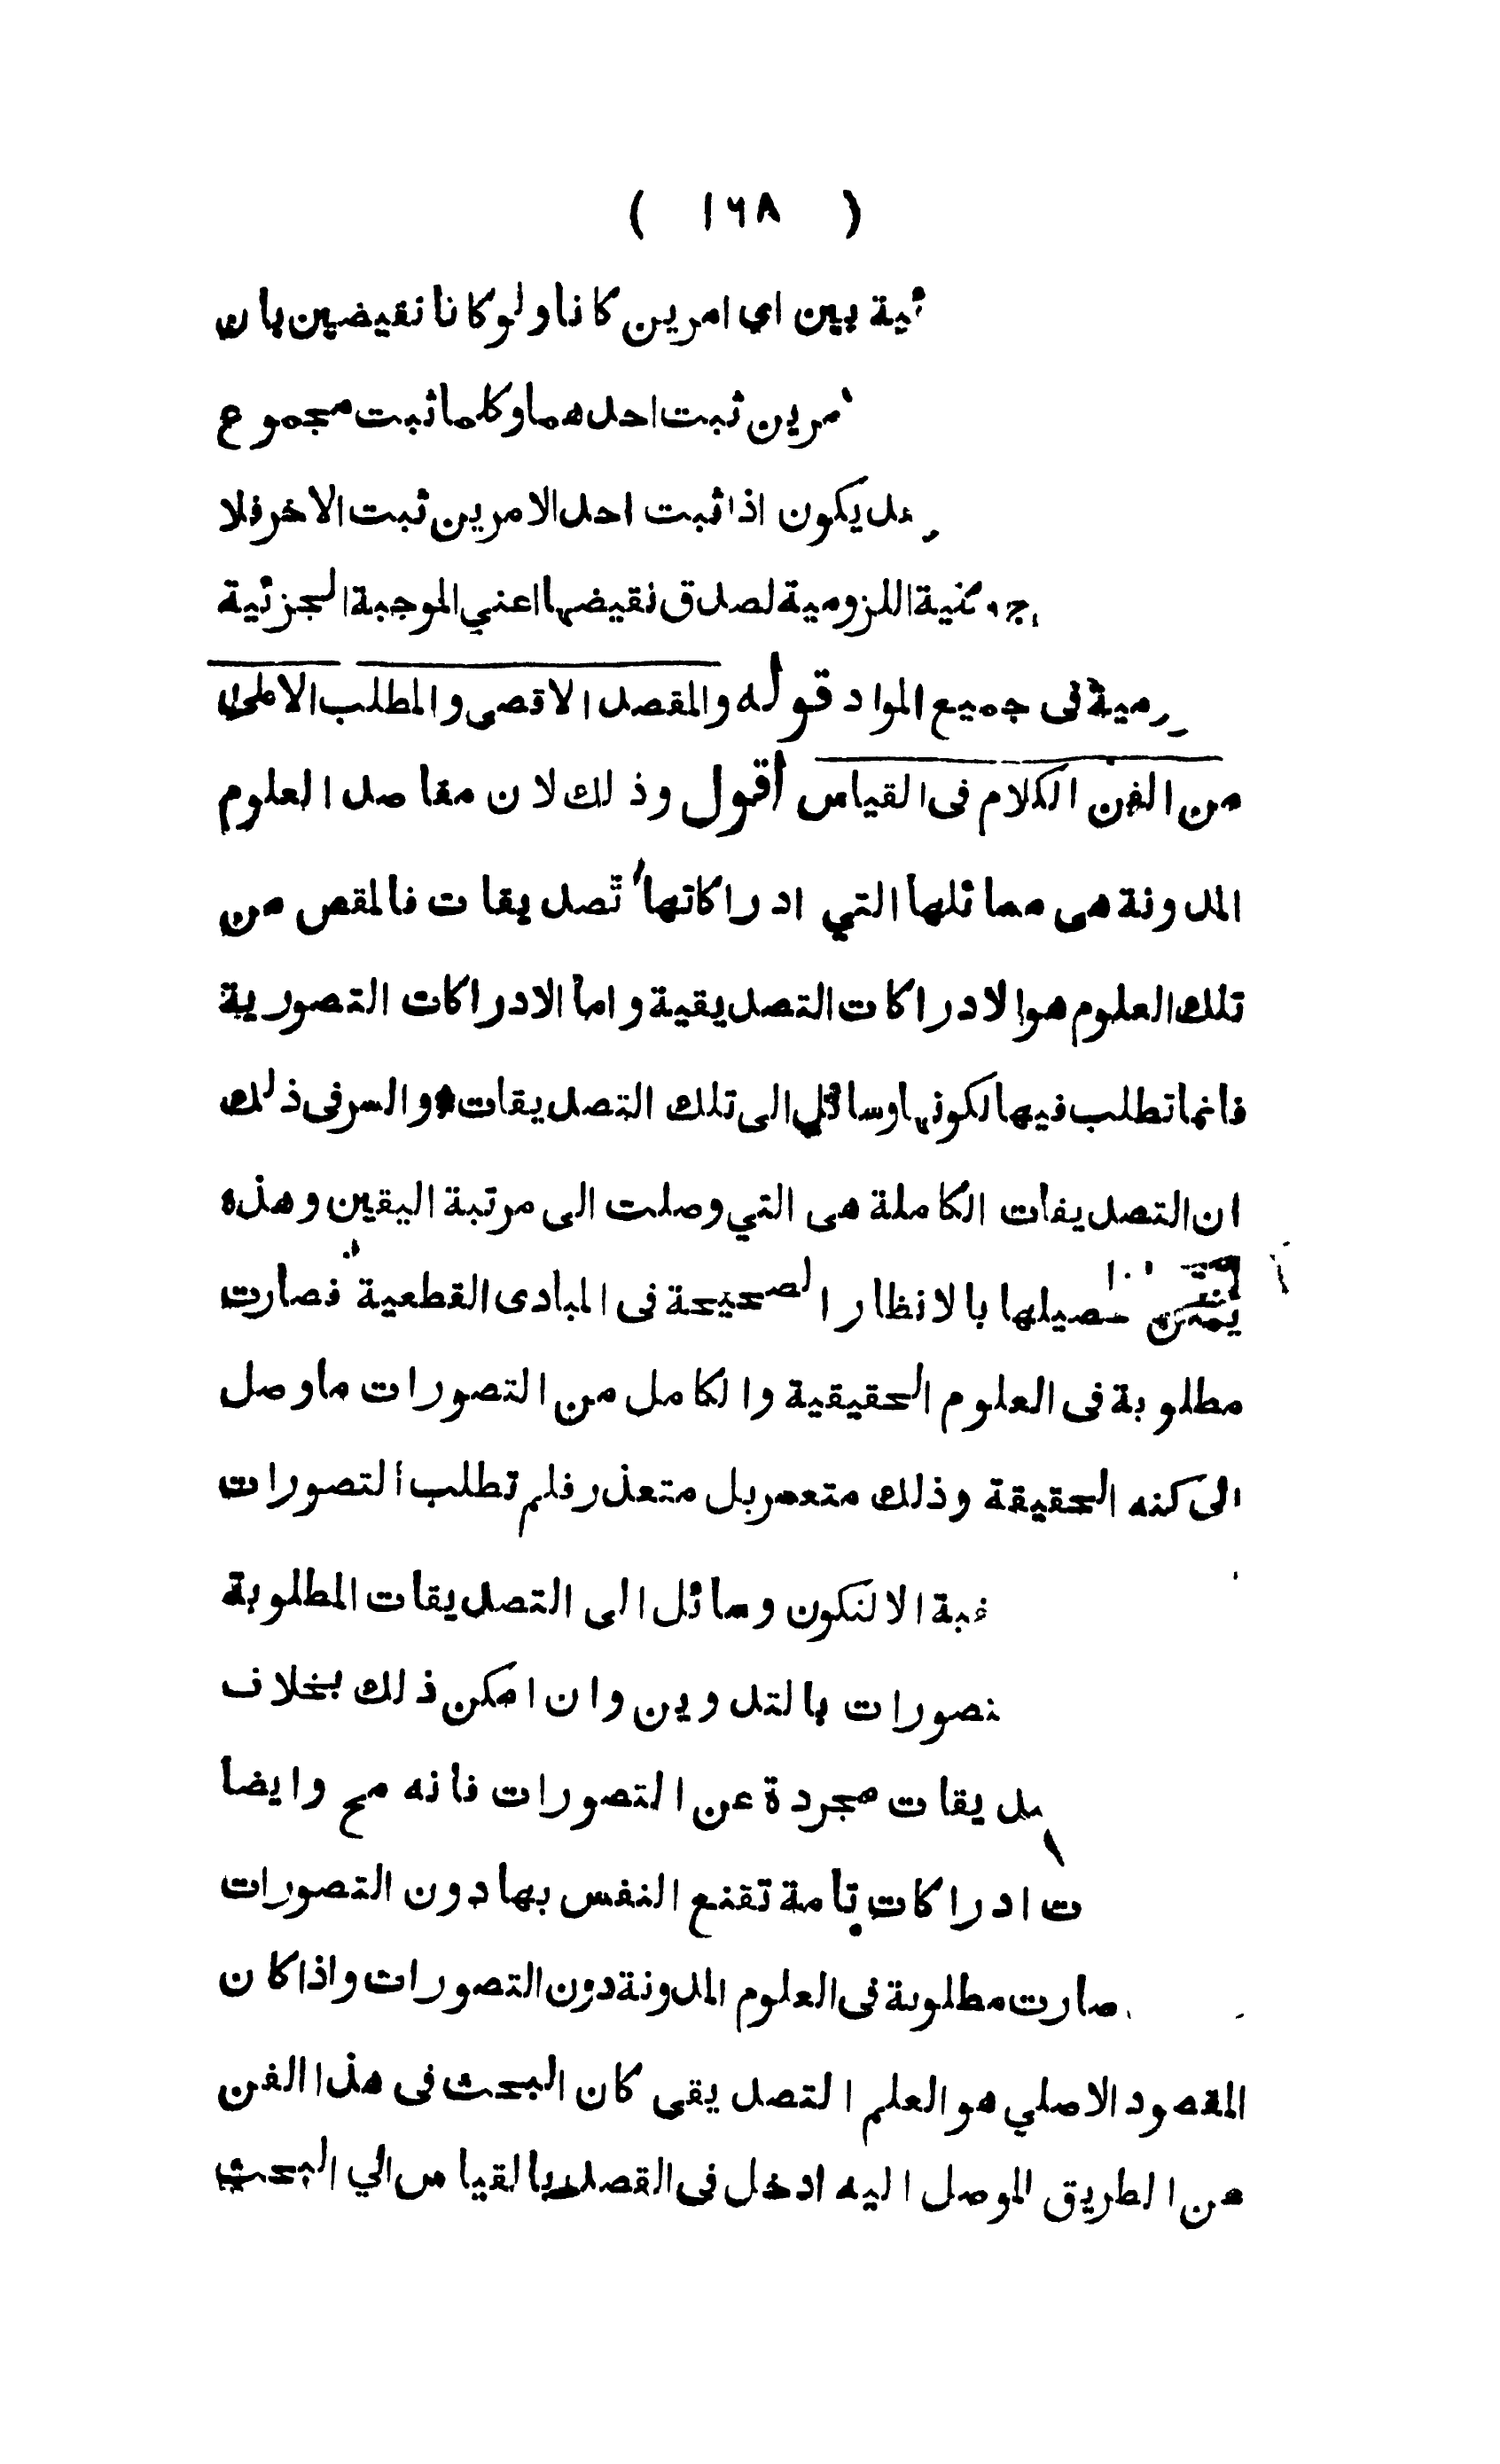 ( ١٦٨ )
ئية بين اي امرين كانا ولو كانا نقيضين بان
مرين ثبت احدهما وكلما ثبت مجموع
يكون اذا ثبت احد الامرين ثبت الاخر فلا
اللزومية لصدق نقيضها اعني الموجبة الجزئية
مية فى جميع المواد قوله والمقصد الاقصى والمطلب الاعلى
من الفن الكلام فى القياس أقول وذلك لان مقاصد العلوم
المدونة هى مسائلها التي ادراكاتها تصديقات فالمقص من
تلك العلوم هو الادراكات التصديقية واما الادراكات التصورية
فانما تطلب فيها لكونها وسائل الى تلك التصديقات والسر فى ذلك
ان التصديقات الكاملة هى التي وصلت الى مرتبة اليقين وهذه
يمكن تحصيلها بالانظار الصحيحة فى المبادى القطعية فصارت
مطلوبة فى العلوم الحقيقية والكامل من التصورات ما وصل
الى كنه الحقيقة وذلك متعسر بل متعذر فلم تطلب التصورات
الا لتكون وسائل الى التصديقات المطلوبة
تصورات بالتدوين وان امكن ذلك بخلاف
ديقات مجردة عن التصورات فانه مح وايضا
ت ادراكات تامة تقنع النفس بها دون التصورات
صارت مطلوبة فى العلوم المدونة دون التصورات واذا كان
المقصود الاصلي هو العلم التصديقى كان البحث فى هذا الفن
عن الطريق الموصل اليه ادخل فى القصد بالقياس الي البحث